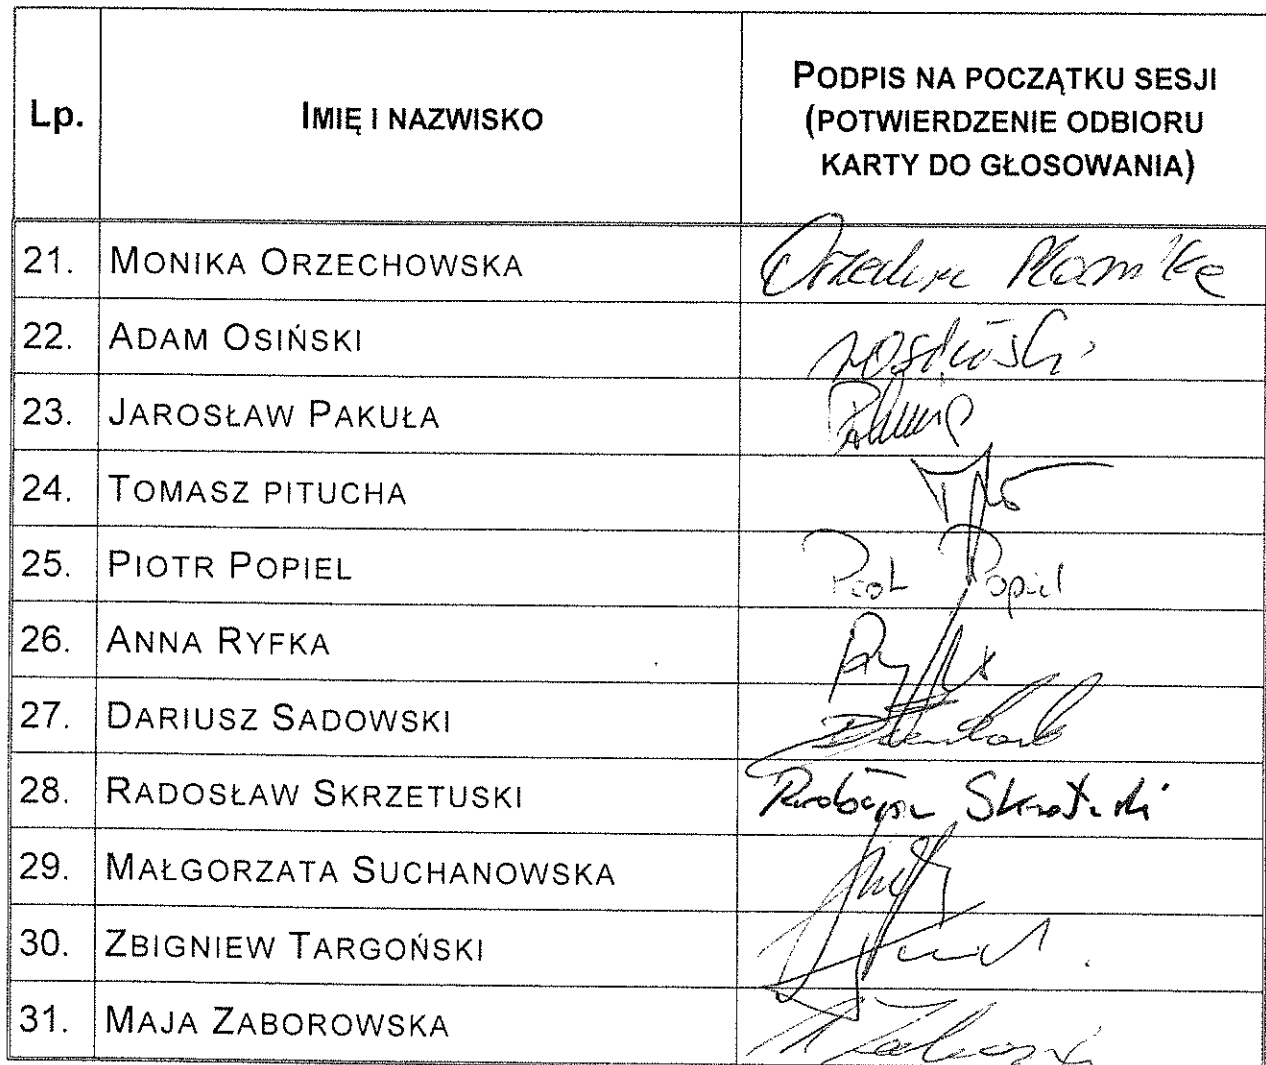 Lp.
IMIĘ I NAZWISKO
PODPIS NA POCZĄTKU SESJI
(POTWIERDZENIE ODBIORU
KARTY DO GŁOSOWANIA)
21. MONIKA ORZECHOWSKA
22. ADAM OSIŃSKI
23. JAROSŁAW PAKUŁA
24. TOMASZ PITUCHA
25. PIOTR POPIEL Piotr Popiel
26. ANNA RYFKA
27. DARIUSZ SADOWSKI
28. RADOSŁAW SKRZETUSKI
29. MAŁGORZATA SUCHANOWSKA
30. ZBIGNIEW TARGOŃSKI
31. MAJA ZABOROWSKA